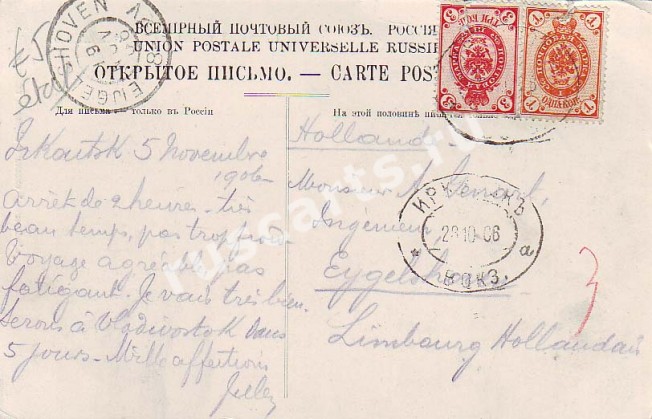 ВСЕМІРНЫЙ ПОЧТОВЫЙ СОЮЗЪ. РОССІЯ
UNION POSTALE UNIVERSELLE RUSSIE
ОТКРЫТОЕ ПИСЬМО. — CARTE POS
Для письма — только въ Россіи
На этой половинѣ
3 3
1 1
ОДНА КОП.
HOVEN
Irkoutsk 5 Novembre
1906
Arrêt de 2 heures - très
beau temps, pas trop froid
Voyage agréable, pas
fatigant. Je vais très bien.
Serons à Vladivostok dans
5 jours - Mille affections
Holland
Monsieur A. Lenart,
Ingenieur
Eygelshoven
Limbourg Hollandais
ИРКУТСКЪ
23 10 06
ВОКЗ.
а
3
ruscarts.ru